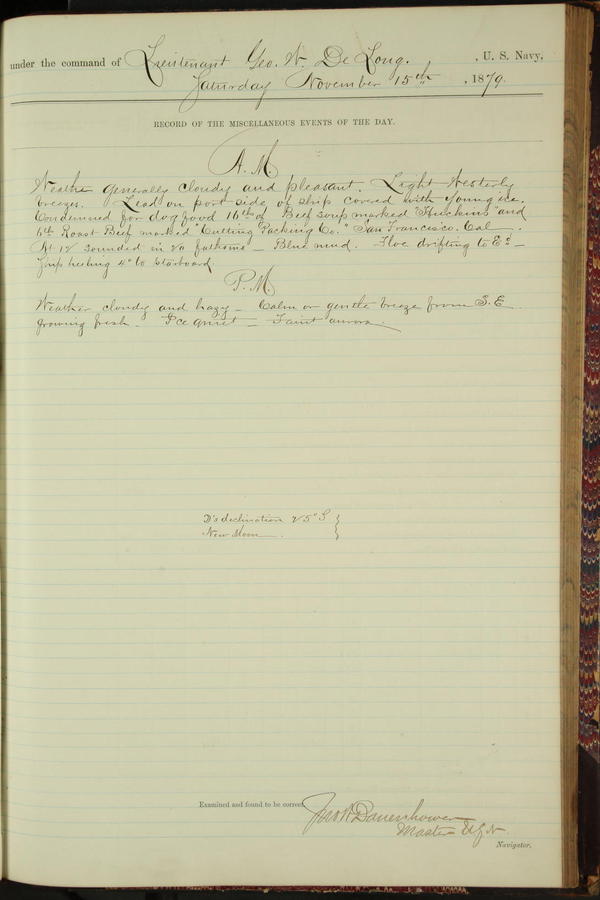 under the command of Lieutenant Geo. W. De Long. , U. S. Navy,
Saturday November 15th , 1879.
RECORD OF THE MISCELLANEOUS EVENTS OF THE DAY.
A.M.
Weather generally cloudy and pleasant. Light Westerly
breezes. Lead on port side of ship covered with young ice.
Condemned for dog food 16 lbs of Beef soup marked "Huckins" and
6 lb Roast Beef marked "Cutting Packing Co." San Francisco. Cal.
At 12 sounded in 20 fathoms — Blue mud. Floe drifting to Ed —
Ship heeling 4° to starboard.
P.M.
Weather cloudy and hazy — Calm or gentle breeze from S.E
growing fresh. Ice quiet — Faint aurora.
D's declination 25° S }
New Moon . }
Examined and found to be correct
Jno W Danenhower
Master U.S.N.
Navigator.